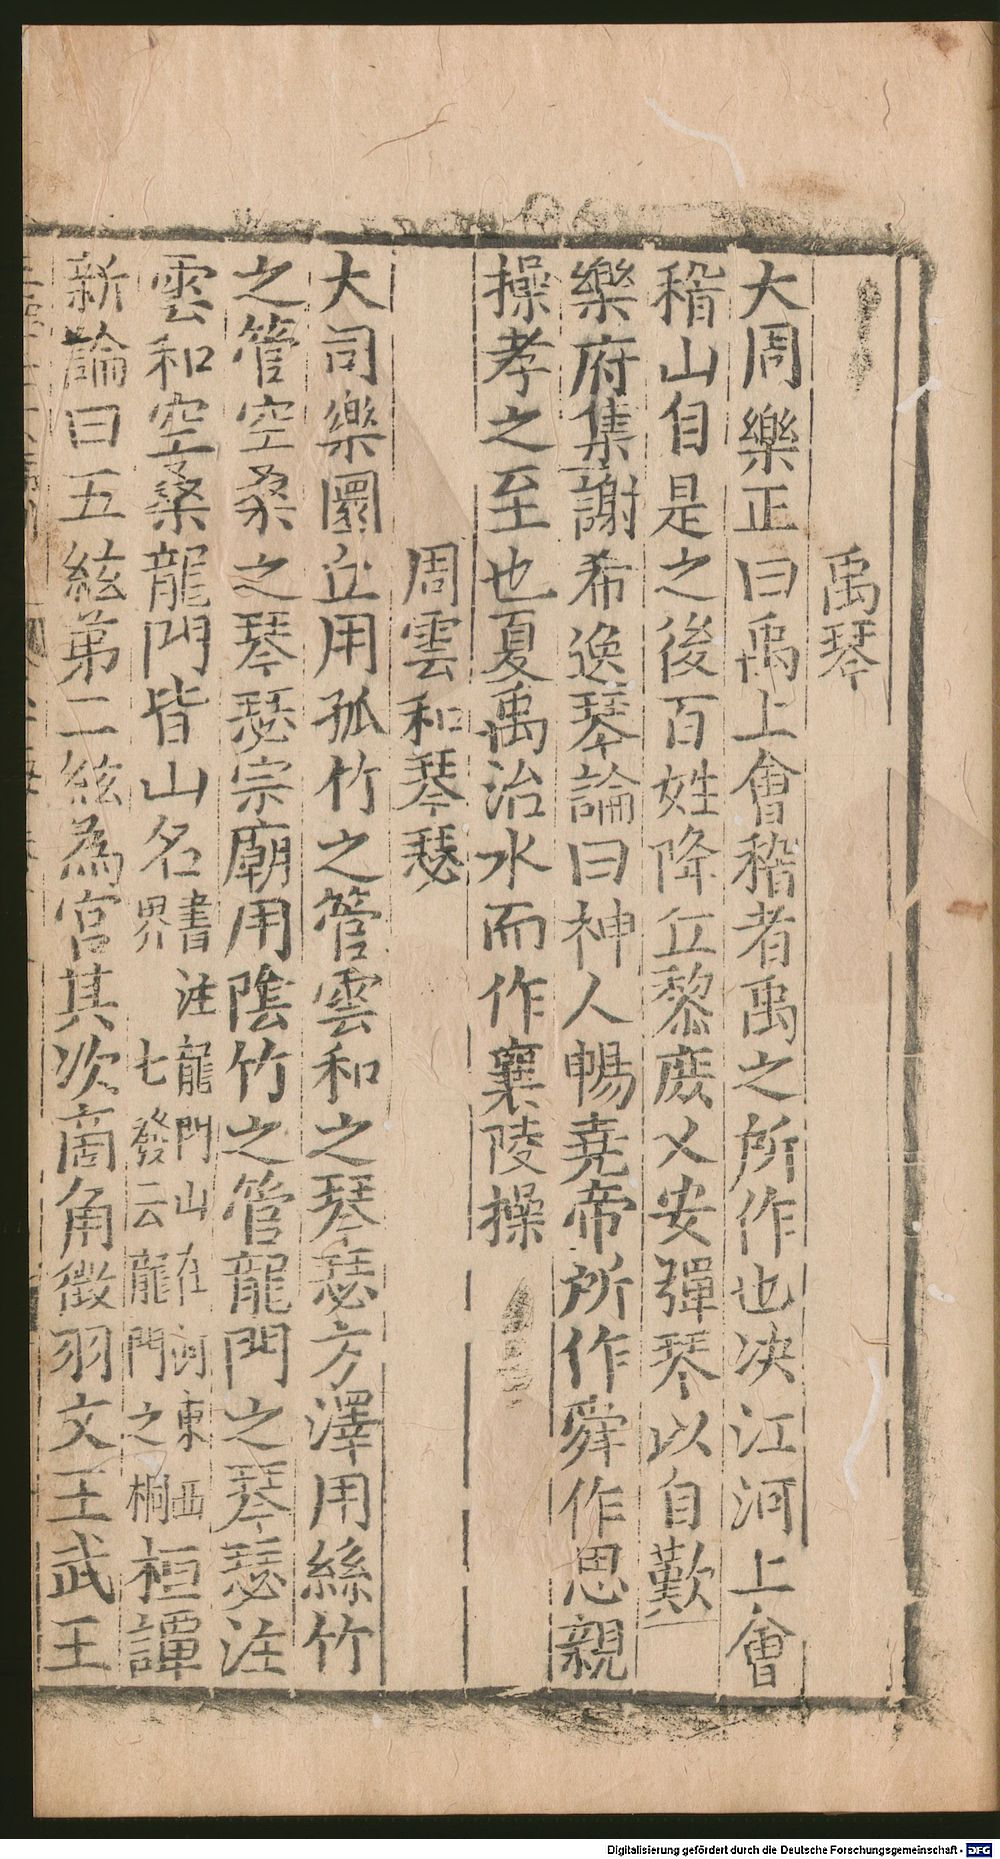 禹琴
大周樂正曰禹上會稽者禹之所作也决江河上會
稽山自是之後百姓降丘黎庶乂安彈琴以自歎
樂府集謝希逸琴論曰神人暢堯帝所作舜作思親
操孝之至也夏禹治水而作襄陵操
周雲和琴瑟
大司樂圜丘用孤竹之管雲和之琴瑟方澤用絲竹
之管空桑之琴瑟宗廟用陰竹之管龍門之琴瑟注
雲和空桑龍門皆山名書注龍門山在河東西
界七發云龍門之桐桓譚
新論曰五絃第二絃為宮其次商角徵羽文王武王
Digitalisierung gefördert durch die Deutsche Forschungsgemeinschaft - DFG